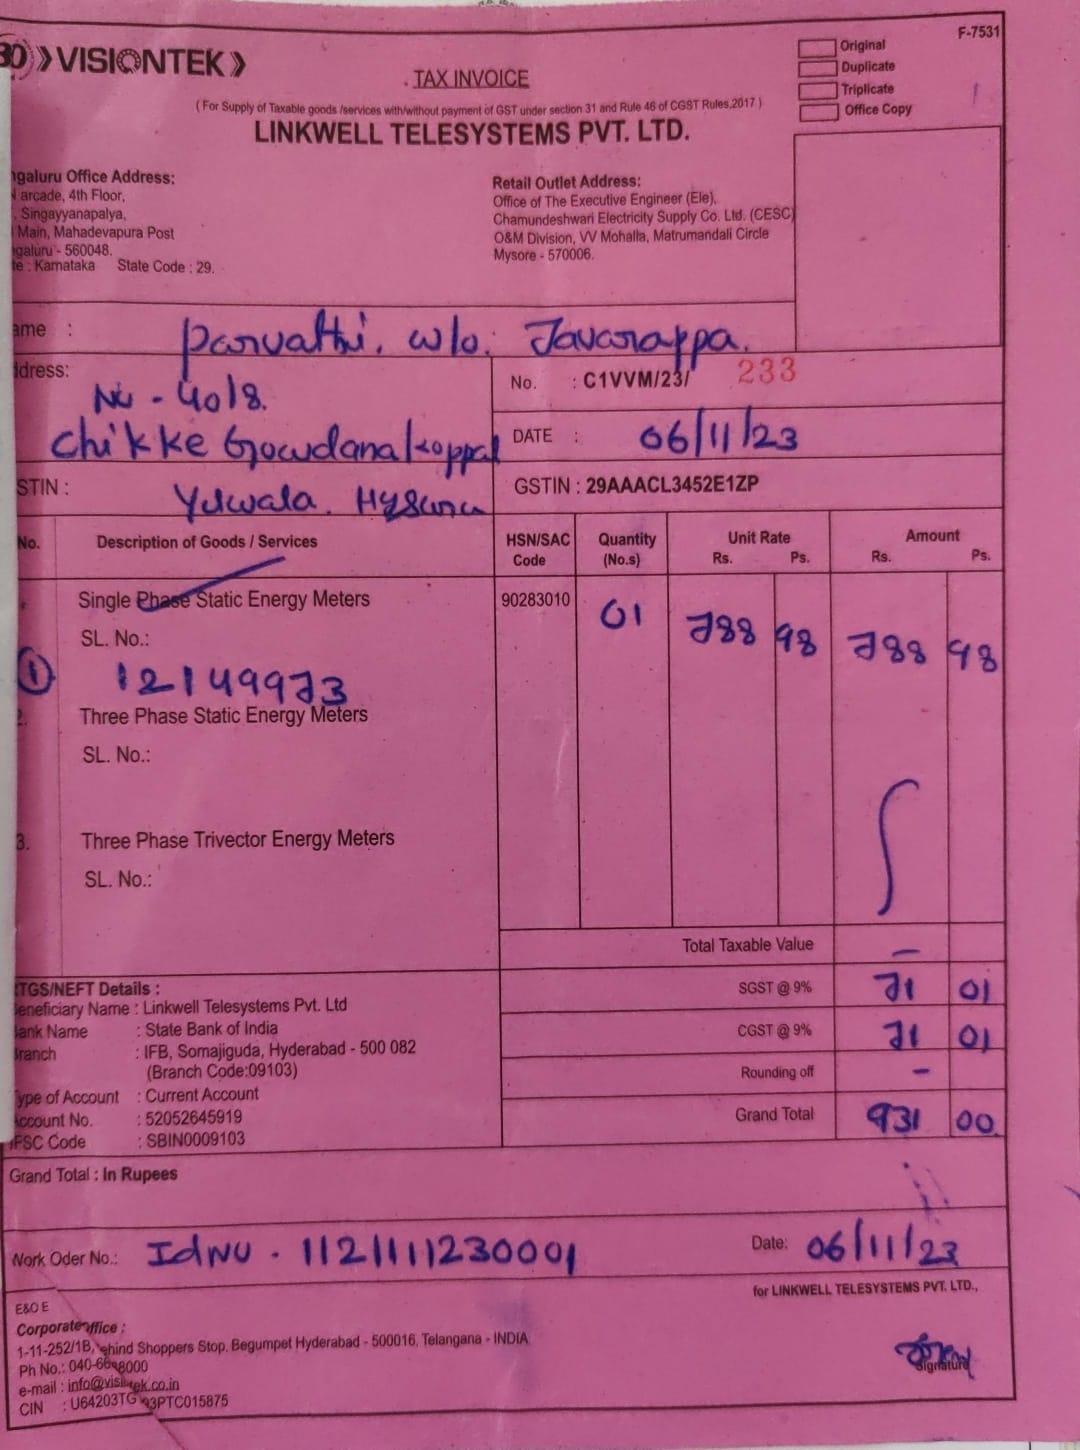 VISIONTEK
F-7531
Original
Duplicate
Triplicate
Office Copy
TAX INVOICE
(For Supply of Taxable goods /services with/without payment of GST under section 31 and Rule 46 of CGST Rules,2017)
LINKWELL TELESYSTEMS PVT. LTD.
galuru Office Address:
arcade, 4th Floor,
Singayyanapalya,
Main, Mahadevapura Post
galuru - 560048.
te : Karnataka State Code : 29.
Retail Outlet Address:
Office of The Executive Engineer (Ele),
Chamundeshwari Electricity Supply Co. Ltd. (CESC)
O&M Division, VV Mohalla, Matrumandali Circle
Mysore - 570006.
ame : Parvathi. w/o. Javarappa.
ddress: No - 40/8.
Chikke Gowdana koppal
Yelwala. Mysuru
No. : C1VVM/23/ 233
DATE : 06/11/23
STIN :
GSTIN : 29AAACL3452E1ZP
No. Description of Goods / Services HSN/SAC Code Quantity (No.s) Unit Rate Rs. Ps. Amount Rs. Ps.
Single Phase Static Energy Meters 90283010 01 788 98 788 98
SL. No.:
① 12149973
2. Three Phase Static Energy Meters
SL. No.:
3. Three Phase Trivector Energy Meters
SL. No.:
Total Taxable Value -
SGST @ 9% 71 01
CGST @ 9% 71 01
Rounding off -
Grand Total 931 00
TGS/NEFT Details :
eneficiary Name : Linkwell Telesystems Pvt. Ltd
ank Name : State Bank of India
ranch : IFB, Somajiguda, Hyderabad - 500 082
(Branch Code:09103)
ype of Account : Current Account
ccount No. : 52052645919
FSC Code : SBIN0009103
Grand Total : In Rupees
Work Oder No.: IdNO - 1121111230001
Date: 06/11/23
for LINKWELL TELESYSTEMS PVT. LTD.,
E&O E
Corporate ffice :
1-11-252/1B, ehind Shoppers Stop, Begumpet Hyderabad - 500016, Telangana - INDIA
Ph No.: 040-66 8000
e-mail : info@visi tek.co.in
CIN : U64203TG 93PTC015875
Signature